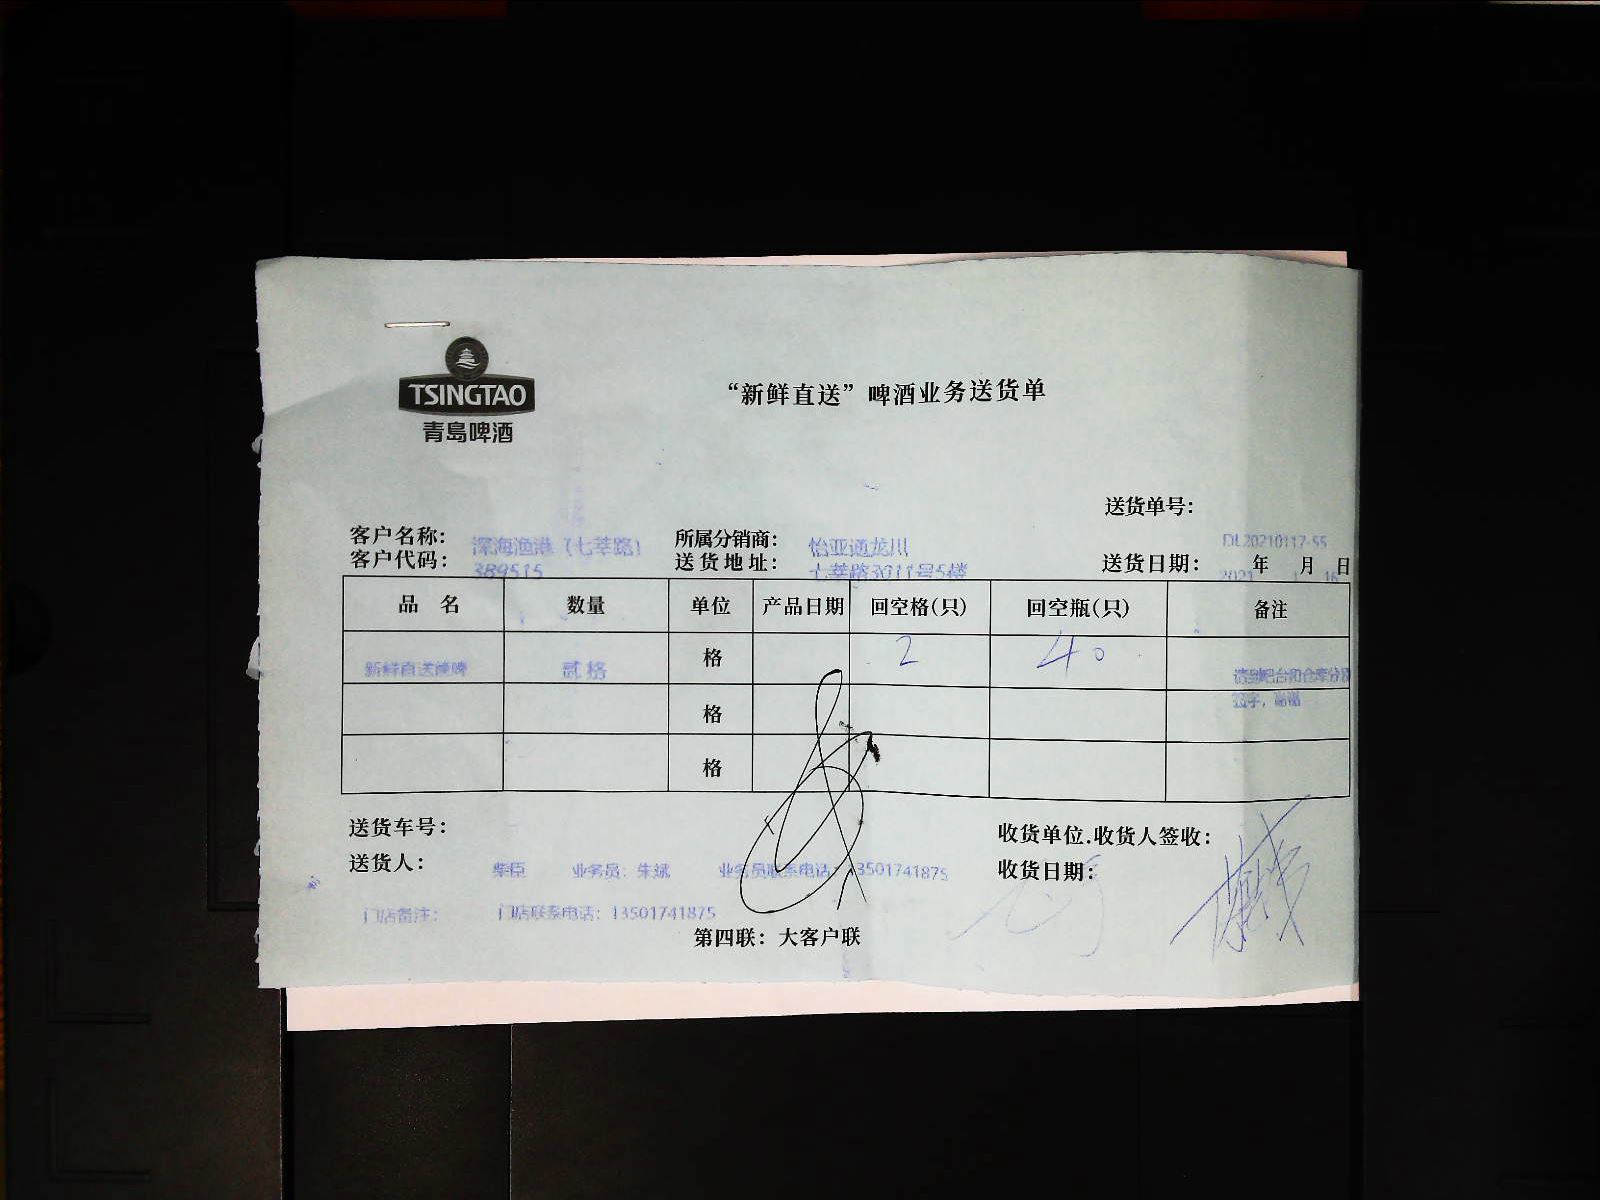 TSINGTAO
青島啤酒
“新鲜直送”啤酒业务送货单
送货单号：
DL20210117-55
客户名称： 深海渔港（七莘路） 所属分销商： 怡亚通龙川
客户代码： 389515 送货地址： 七莘路3011号5楼 送货日期： 2021 年 1 月 16 日
品 名 数量 单位 产品日期 回空格(只) 回空瓶(只) 备注
新鲜直送 贰格 格 2 40 请到吧台和仓库分别
签字，谢谢
格
格
送货车号： 收货单位.收货人签收：
送货人： 柴臣 业务员：朱斌 业务员联系电话：13501741875 收货日期：
门店备注： 门店联系电话：13501741875
第四联：大客户联